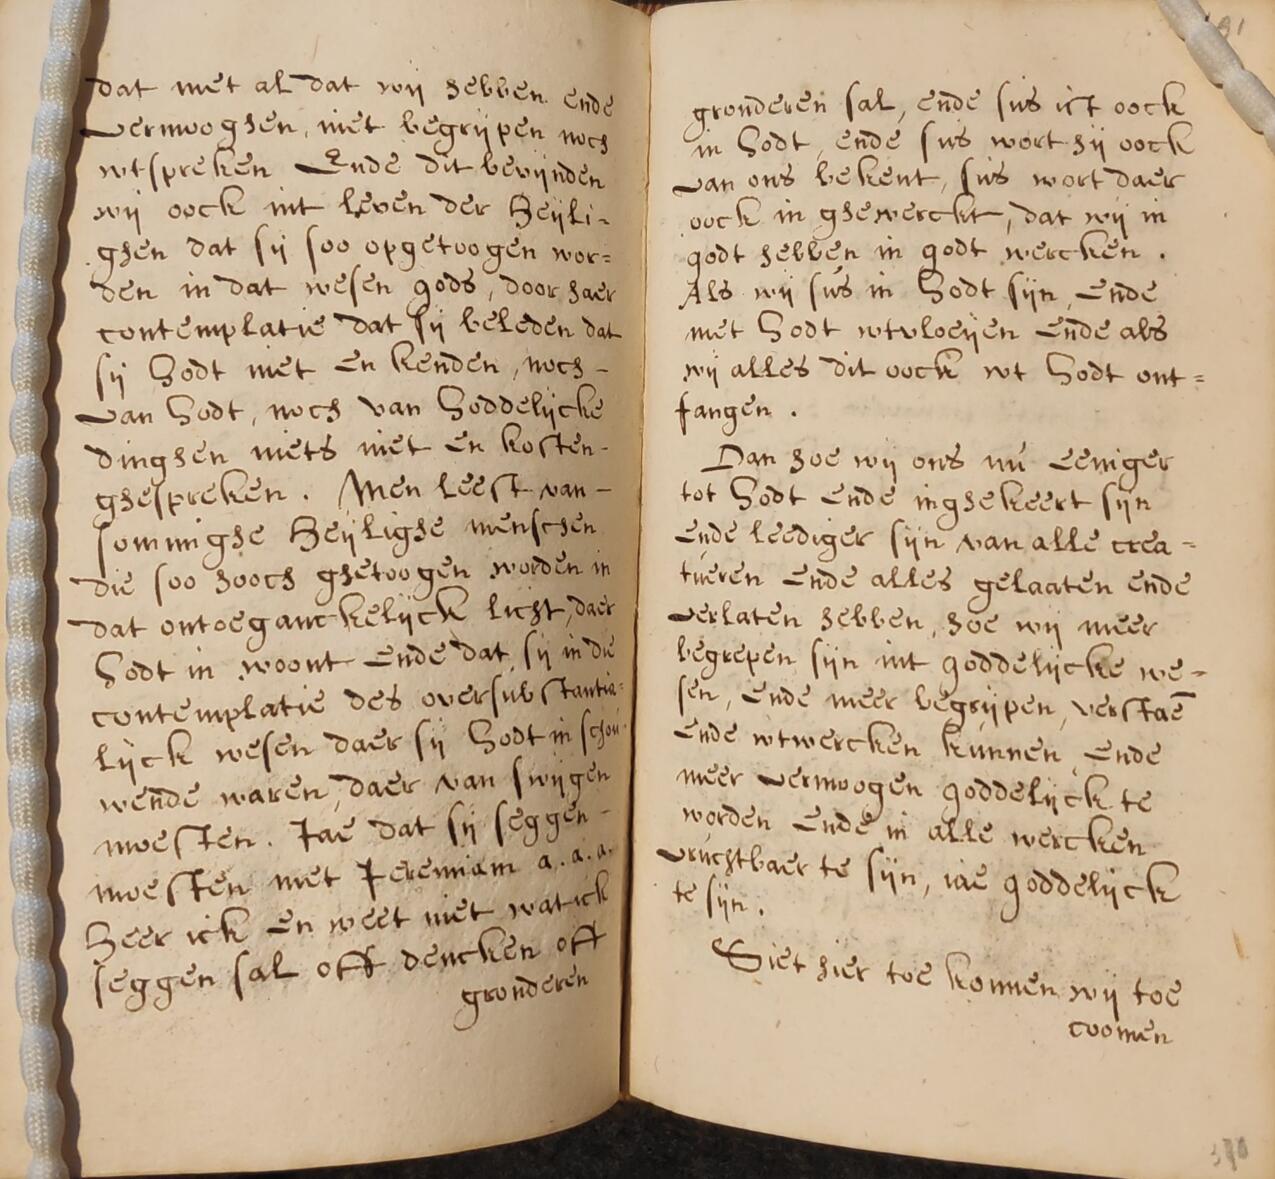 dat met al dat wij hebben ende
vermooghen, niet begrijpen noch
wtspreken Ende dit bevijnden
wij oock int leven der Heijli-
ghen dat sij soo opgetoogen wor=
den in dat wesen gods, door haer
contemplatie dat sij beleden dat
sij Godt niet en kenden, noch-
van Godt, noch van Goddelijcke
dinghen niets niet en kosten-
ghespreken. Men leest van-
sominighe Heijlighe menschen
die soo hooch ghetoogen worden in
dat ontoeganckelijck licht, daer
Godt in woont Ende dat, sij in die
contemplatie des oversubstantia=
lijck wesen daer sij Godt in schou
wende waren, daer van swijgen
moesten. Jae dat sij seggen-
moesten met Jeremiam a.a.a.
Heer ick en weet niet wat ick
seggen sal off dencken off
gronderen
gronderen sal, ende sus ist oock
in Godt, ende sus wort hij oock
van ons bekent, sus wort daer
oock in ghewerckt, dat wij in
godt hebben in godt wercken.
Als wij sus in Godt sijn, Ende
met Godt wtvloeijen Ende als
wij alles dit oock wt Godt ont=
fangen.
Dan hoe wij ons nu Eeniger
tot Godt Ende inghekeert sijn
Ende leediger sijn van alle crea=
tueren Ende alles gelaaten ende
verlaten hebben, hoe wij meer
begrepen sijn int goddelijcke we=
sen, Ende meer begrijpen, verstaē
Ende wtwercken kunnen, Ende
meer vermoogen goddelijck te
worden Ende in alle wercken
vruchtbaer te sijn, iae goddelijck
te sijn.
Siet hier toe konnen wij toe
coomen
370